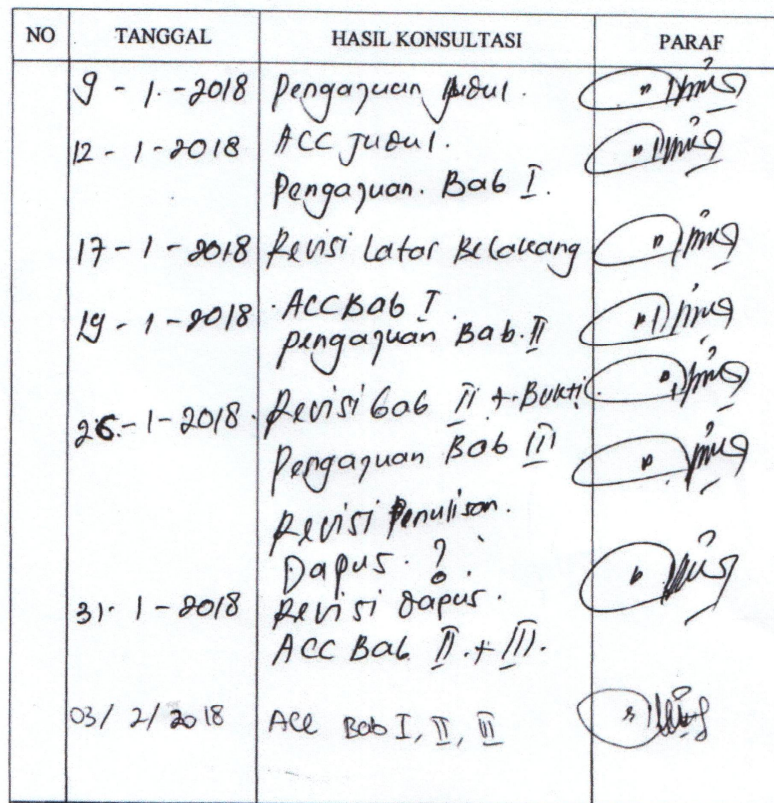 NO TANGGAL HASIL KONSULTASI PARAF
9 - 1 - 2018 Pengajuan Judul.
12 - 1 - 2018 ACC Judul.
Pengajuan. Bab I.
17 - 1 - 2018 Revisi Latar Belakang
19 - 1 - 2018 ACC Bab I.
pengajuan Bab. II
26 - 1 - 2018. Revisi bab II + Bukti.
Pengajuan Bab III
Revisi Penulisan.
Dapus. ?
31 - 1 - 2018 Revisi dapus.
ACC Bab II. + III.
03/ 2/ 2018 ACC Bab I, II, II